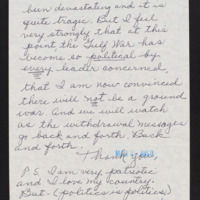 been devastating and it is
quite tragic. But I feel
very strongly that at this
point the Gulf War has
become so political by
every leader concerned,
that I am now convinced
there will not be a ground
war. And we will watch
as the withdrawal messages
go back and forth. Back
and forth.
Thank you,
P.S. I am very patriotic
and I love my country.
But - (politics is politics)